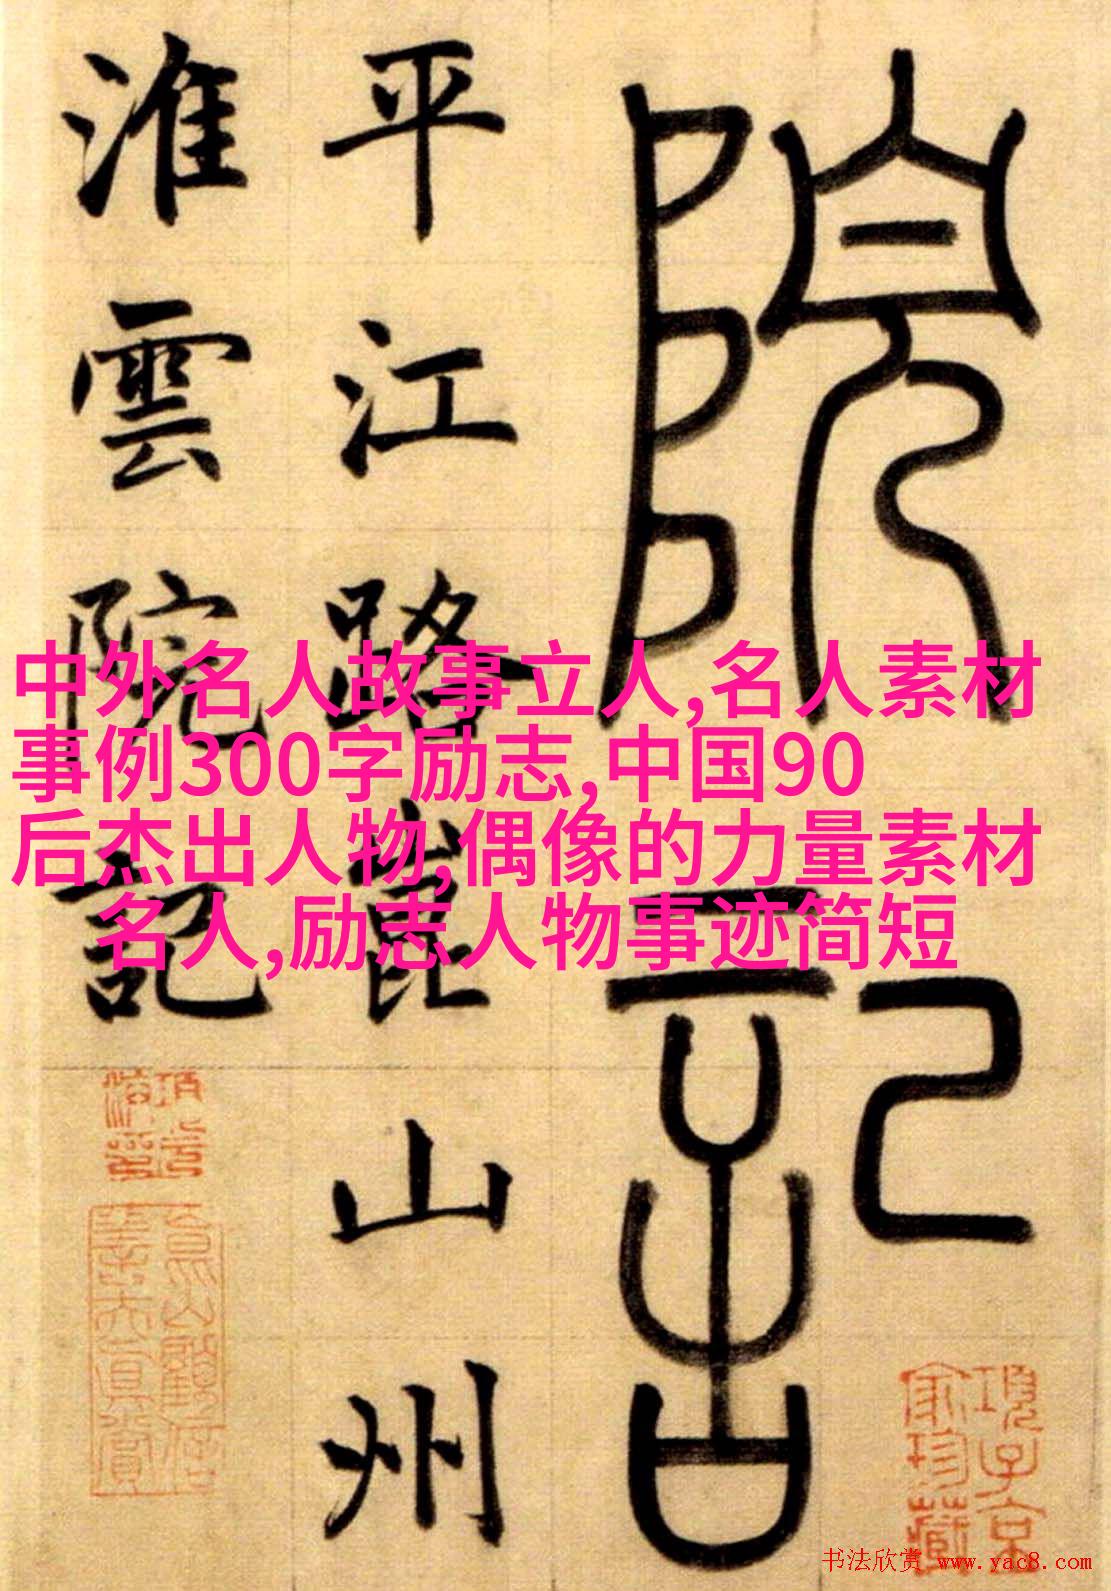 院記
平江路崑山州
淮雲院記
中外名人故事立人,名人素材
事例300字励志,中国90
后杰出人物,偶像的力量素材
名人,励志人物事迹简短
項子京
家珍藏
書法欣赏 www.yac8.com